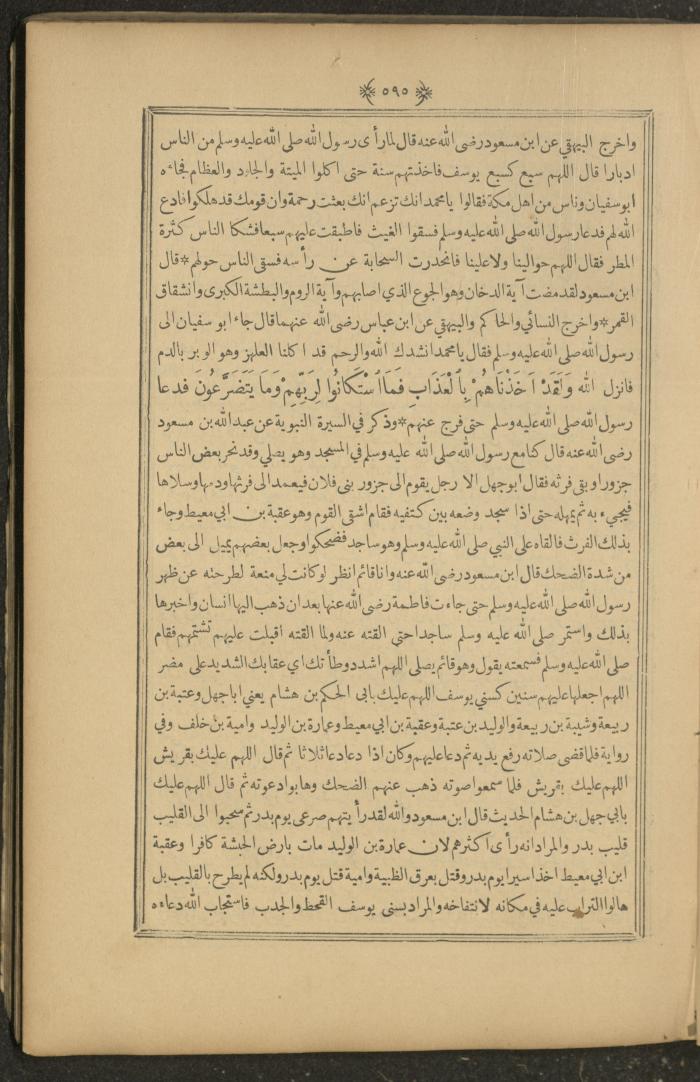 ﴿ ٥٩٥ ﴾
واخرج البيهقي عن ابن مسعود رضى الله عنه قال لما رأى رسول الله صلى الله عليه وسلم من الناس
ادبارا قال اللهم سبع كسبع يوسف فاخذتهم سنة حتى اكلوا الميتة والجلود والعظام فجاءه
ابوسفيان وناس من اهل مكة فقالوا يا محمد انك تزعم انك بعثت رحمة وان قومك قد هلكوا فادع
الله لهم فدعا رسول الله صلى الله عليه وسلم فسقوا الغيث فاطبقت عليهم سبعا فشكا الناس كثرة
المطر فقال اللهم حوالينا ولا علينا فانحدرت السحابة عن رأسه فسقى الناس حولهم * قال
ابن مسعود لقد مضت آية الدخان وهو الجوع الذي اصابهم وآية الروم والبطشة الكبرى وانشقاق
القمر * واخرج النسائي والحاكم والبيهقي عن ابن عباس رضى الله عنهما قال جاء ابو سفيان الى
رسول الله صلى الله عليه وسلم فقال يا محمد انشدك الله والرحم قد اكلنا العلهز وهو الوبر بالدم
فانزل الله وَلَقَدْ اَخَذْنَاهُمْ بِالْعَذَابِ فَمَا اسْتَكَانُوا لِرَبِّهِمْ وَمَا يَتَضَرَّعُونَ فدعا
رسول الله صلى الله عليه وسلم حتى فرج عنهم * وذكر في السيرة النبوية عن عبدالله بن مسعود
رضى الله عنه قال كنا مع رسول الله صلى الله عليه وسلم في المسجد وهو يصلي وقد نحر بعض الناس
جزورا وبقى فرثه فقال ابوجهل الا رجل يقوم الى جزور بنى فلان فيعمد الى فرثها ودمها وسلاها
فيجيء به ثم يمهله حتى اذا سجد وضعه بين كتفيه فقام اشقى القوم وهو عقبة بن ابي معيط وجاء
بذلك الفرث فالقاه على النبي صلى الله عليه وسلم وهو ساجد فضحكوا وجعل بعضهم يميل الى بعض
من شدة الضحك قال ابن مسعود رضى الله عنه وانا قائم انظر لو كانت لي منعة لطرحته عن ظهر
رسول الله صلى الله عليه وسلم حتى جاءت فاطمة رضى الله عنها بعد ان ذهب اليها انسان واخبرها
بذلك واستمر صلى الله عليه وسلم ساجدا حتى القته عنه ولما القته اقبلت عليهم تشتمهم فقام
صلى الله عليه وسلم فسمعته يقول وهو قائم يصلي اللهم اشدد وطأتك اي عقابك الشديد على مضر
اللهم اجعلها عليهم سنين كسني يوسف اللهم عليك بابى الحكم بن هشام يعني اباجهل وعتبة بن
ربيعة وشيبة بن ربيعة والوليد بن عتبة وعقبة بن ابي معيط وعمارة بن الوليد وامية بن خلف وفي
رواية فلما قضى صلاته رفع يديه ثم دعا عليهم وكان اذا دعا دعا ثلاثا ثم قال اللهم عليك بقريش
اللهم عليك بقريش فلما سمعوا صوته ذهب عنهم الضحك وهابوا دعوته ثم قال اللهم عليك
بابي جهل بن هشام الحديث قال ابن مسعود والله لقد رأيتهم صرعى يوم بدر ثم سحبوا الى القليب
قليب بدر والمراد انه رأى اكثرهم لان عمارة بن الوليد مات بارض الحبشة كافرا وعقبة
ابن ابي معيط اخذ اسيرا يوم بدر وقتل بعرق الظبية وامية قتل يوم بدر ولكنه لم يطرح بالقليب بل
هالوا التراب عليه في مكانه لانتفاخه والمراد بسنى يوسف القحط والجدب فاستجاب الله دعاءه